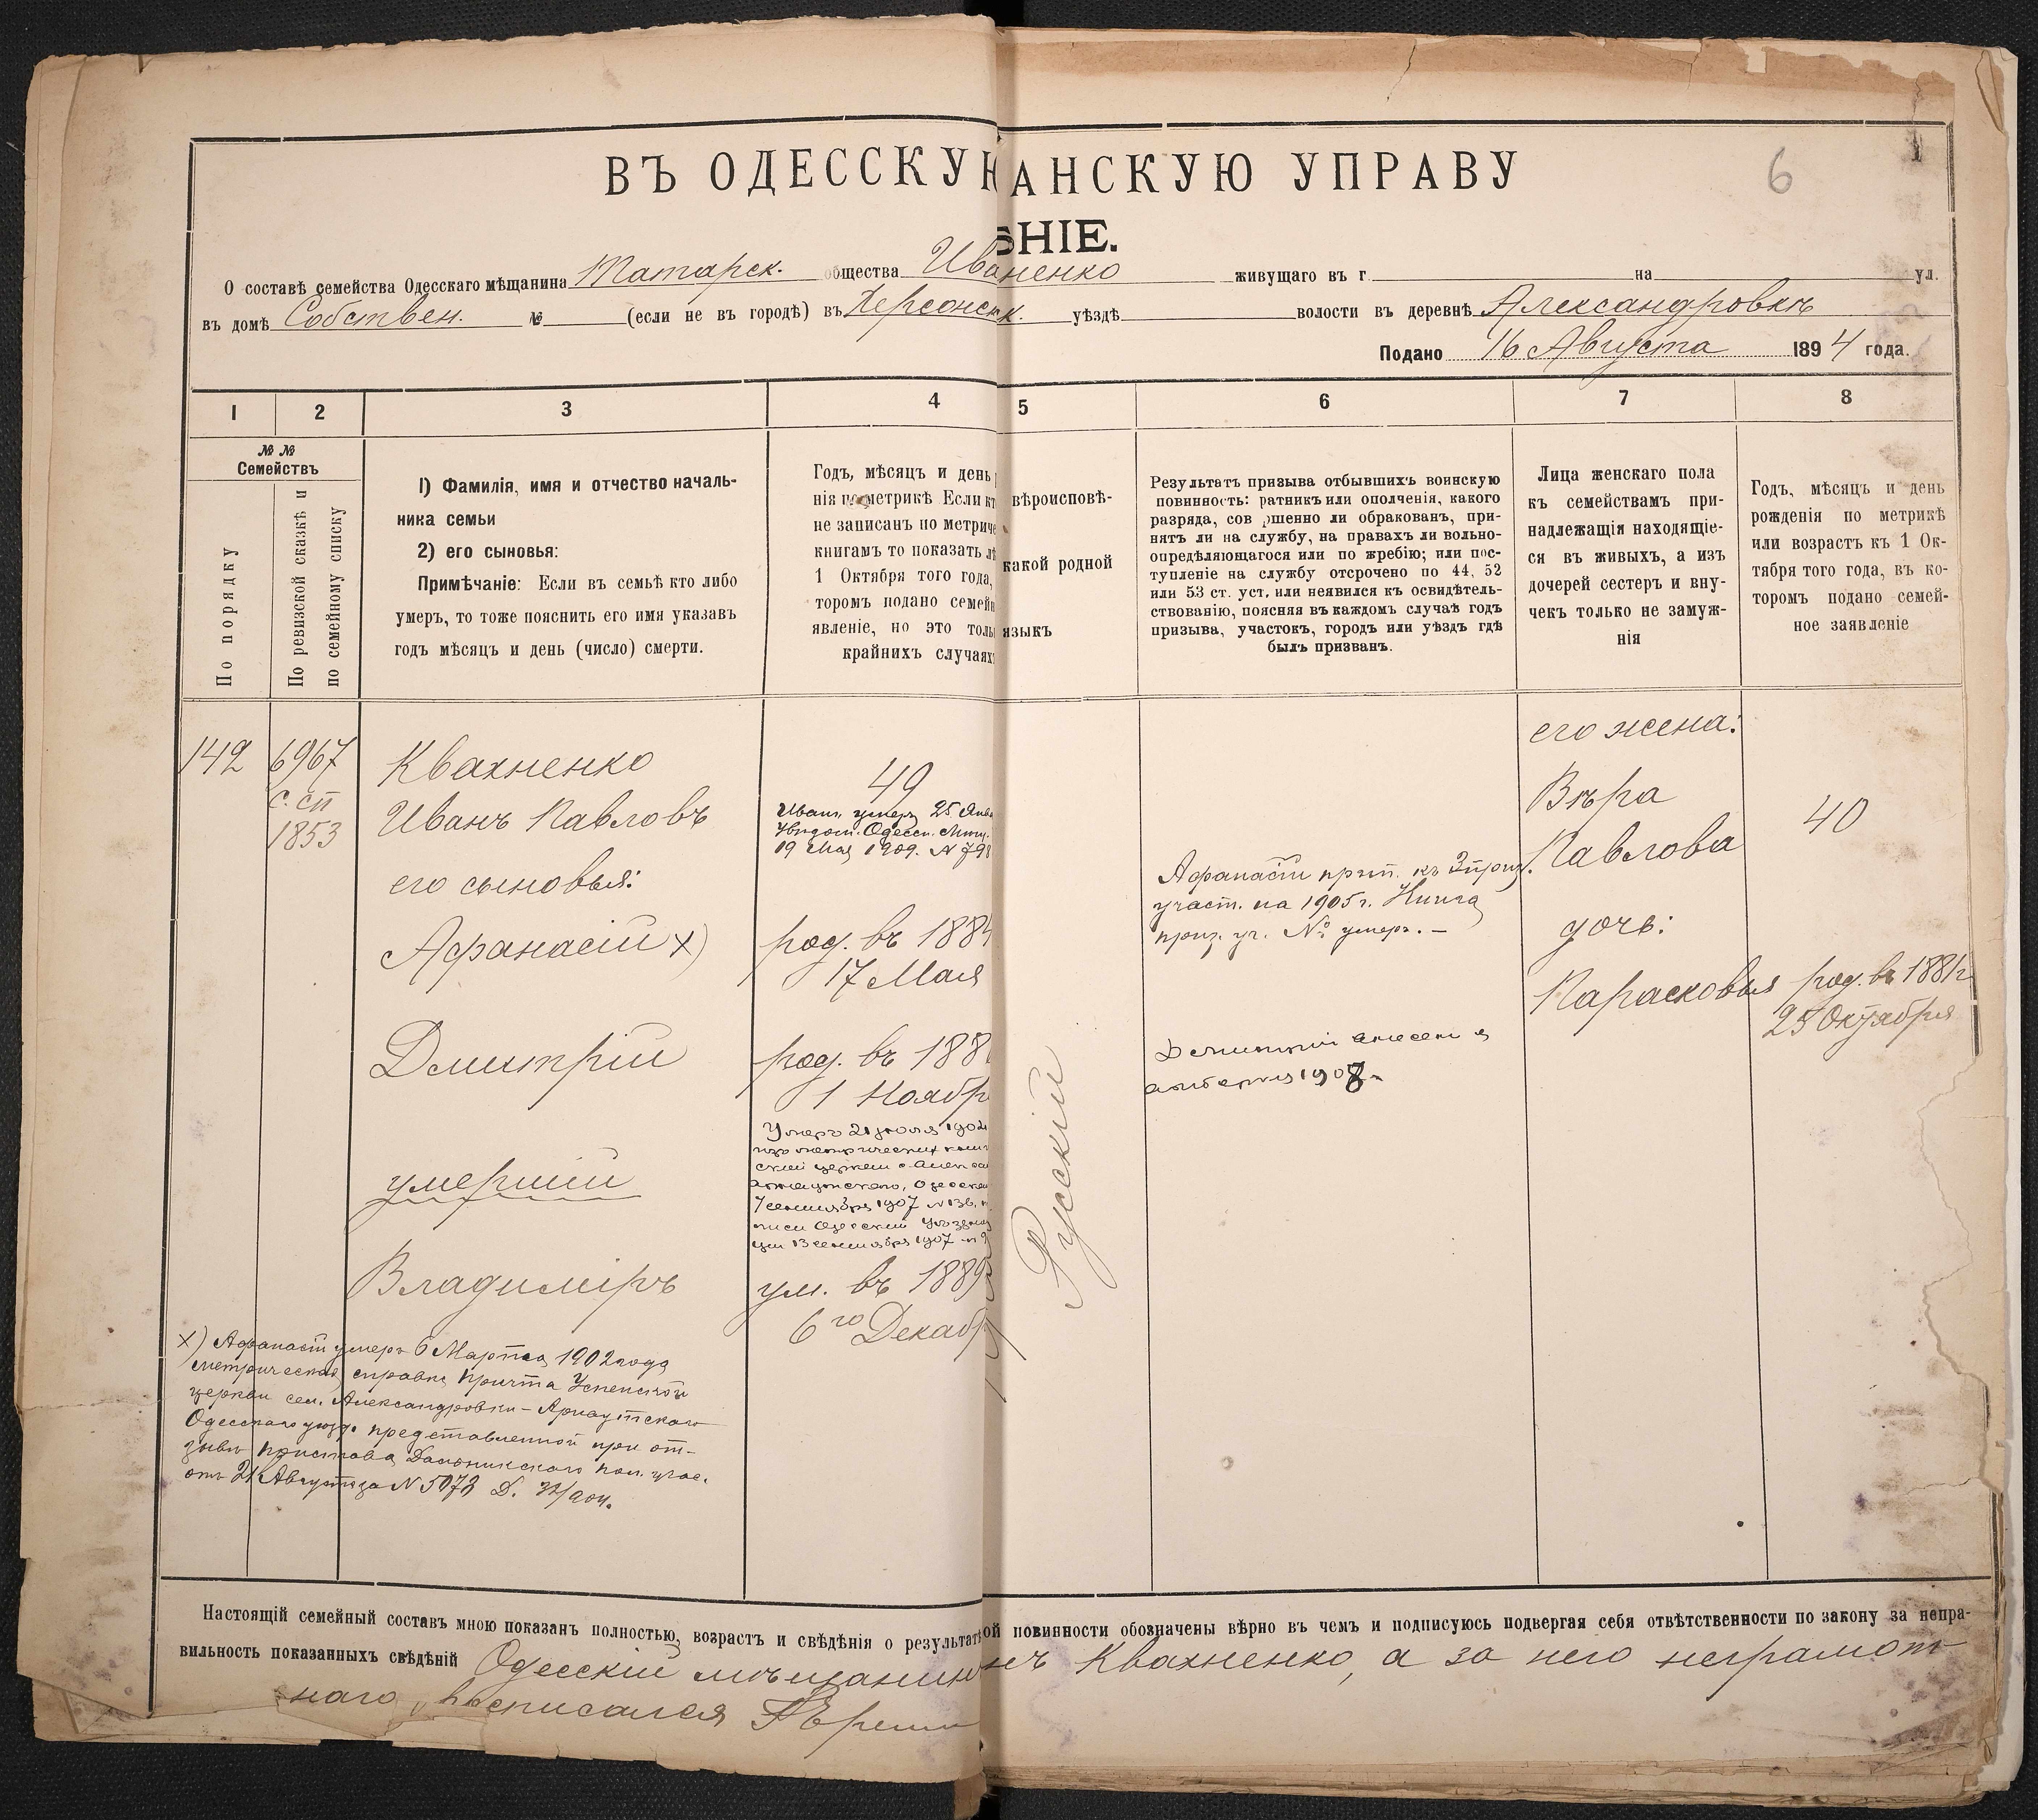 ВЪ ОДЕССКУЮ
АНСКУЮ УПРАВУ
6
1
НІЕ.
О составѣ семейства Одесскаго мѣщанина Татарск. общества Иваненко живущаго въ г. на ул.
въ домѣ Собствен. № (если не въ городѣ) въ Херсонск. уѣздѣ волости въ деревнѣ Александровкѣ
Подано 16 Августа 1894 года.
1 2 3 4 5 6 7 8
№№
Семействъ
По порядку
По ревизской сказкѣ и
по семейному списку
1) Фамилія, имя и отчество началь-
ника семьи
2) его сыновья:
Примѣчаніе: Если въ семьѣ кто либо
умеръ, то тоже пояснить его имя указавъ
годъ мѣсяцъ и день (число) смерти.
Годъ, мѣсяцъ и день
нія по метрикѣ Если кт
не записанъ по метриче
книгамъ то показать лѣ
1 Октября того года,
торомъ подано семейн
явленіе, но это толь
крайнихъ случаях
вѣроисповѣ-
какой родной
языкъ
Результатъ призыва отбывшихъ воинскую
повинность: ратникъ или ополченія, какого
разряда, сов ршенно ли обракованъ, при-
нятъ ли на службу, на правахъ ли вольно-
опредѣляющагося или по жребію; или пос-
тупленіе на службу отсрочено по 44, 52
или 53 ст. уст. или неявился къ освидѣтель-
ствованію, поясняя въ каждомъ случаѣ годъ
призыва, участокъ, городъ или уѣздъ гдѣ
былъ призванъ.
Лица женскаго пола
къ семействамъ при-
надлежащія находящіе-
ся въ живыхъ, а изъ
дочерей сестеръ и вну-
чекъ только не замуж-
нія
Годъ, мѣсяцъ и день
рожденія по метрикѣ
или возрастъ къ 1 Ок-
тября того года, въ ко-
торомъ подано семей-
ное заявленіе
142
6967
с. сп
1853
Квахненко
Иванъ Павловъ
его сыновья:
Афанасій х)
Дмитрій
умершій
Владиміръ
49
Иванъ умеръ 25 Янв
Увѣдом. Одесск. Мѣщ.
19 Мая 1909. N 798
род. въ 1884
17 Мая
род. въ 188
1 Ноябр
Умеръ 21 июля 1902
изъ метрических
7 сентября 1907 N 136,
13 сентября 1907
ум. въ 1889
6го Декабр
Русскій
Афанасій прип. къ 3 приз.
участ. на 1905 г. Книга
приз. уч. № умеръ. –
Дмитрій внесен в
1908
его жена:
Вѣра
Павлова
дочь:
Парасковья
40
род. въ 1881г
25 Октября
х) Афанасій умеръ 6 Марта 1902 года
метрическая справка Причта Успенской
церкви сел. Александровки-Арнаутскаго
Одесскаго уѣзд. представленной при от-
зывѣ пристава Дальникскаго пол. учас.
отъ 21 Августа за N 5078
Настоящій семейный составъ мною показанъ полностью, возрастъ и свѣдѣнія о результат
ой повинности обозначены вѣрно въ чемъ и подписуюсь подвергая себя отвѣтственности по закону за непра-
вильность показанныхъ свѣдѣній Одесскій мѣщанин
нъ Квахненко, а за него неграмот
наго росписался